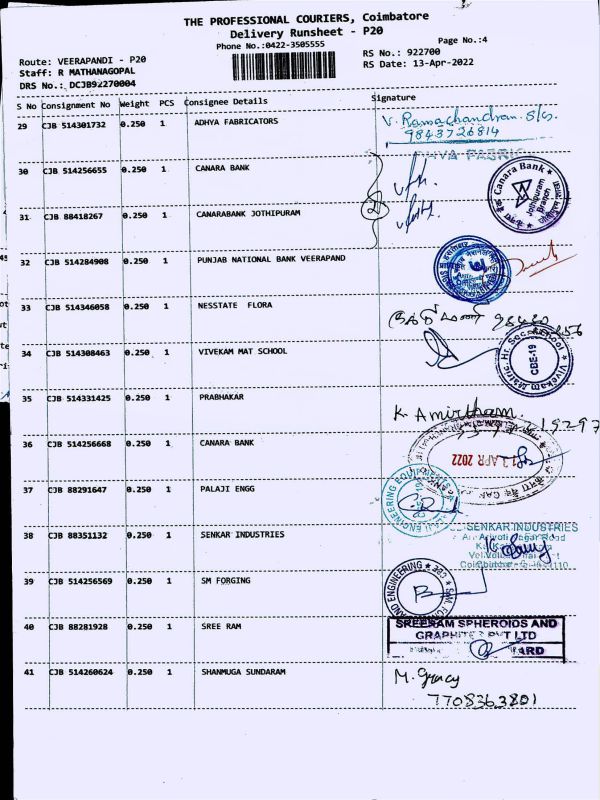 THE PROFESSIONAL COURIERS, Coimbatore
Delivery Runsheet - P20
Phone No.:0422-3505555
Page No.:4
Route: VEERAPANDI - P20
RS No.: 922700
Staff: R MATHANAGOPAL
RS Date: 13-Apr-2022
DRS No.: DCJB92270004
S No Consignment No Weight PCS Consignee Details Signature
29 CJB 514301732 0.250 1 ADHYA FABRICATORS V. Ramachandran. S/o.
9843726814
30 CJB 514256655 0.250 1 CANARA BANK
Canara Bank
Jothipuram
Branch
31 CJB 88418267 0.250 1 CANARABANK JOTHIPURAM
32 CJB 514284908 0.250 1 PUNJAB NATIONAL BANK VEERAPAND
33 CJB 514346058 0.250 1 NESSTATE FLORA
34 CJB 514308463 0.250 1 VIVEKAM MAT SCHOOL
Vivekam Matric. Hr. Sec. School
CBE-19
35 CJB 514331425 0.250 1 PRABHAKAR K. Amirtham.
36 CJB 514256668 0.250 1 CANARA BANK
APR 2022
37 CJB 88291647 0.250 1 PALAJI ENGG
ENGINEERING EQUIPMENTS
38 CJB 88351132 0.250 1 SENKAR INDUSTRIES SENKAR INDUSTRIES
39 CJB 514256569 0.250 1 SM FORGING
AND ENGINEERING
40 CJB 88281928 0.250 1 SREE RAM SREERAM SPHEROIDS AND
GRAPHITE PVT LTD
41 CJB 514260624 0.250 1 SHANMUGA SUNDARAM M. Gracy
7708363801